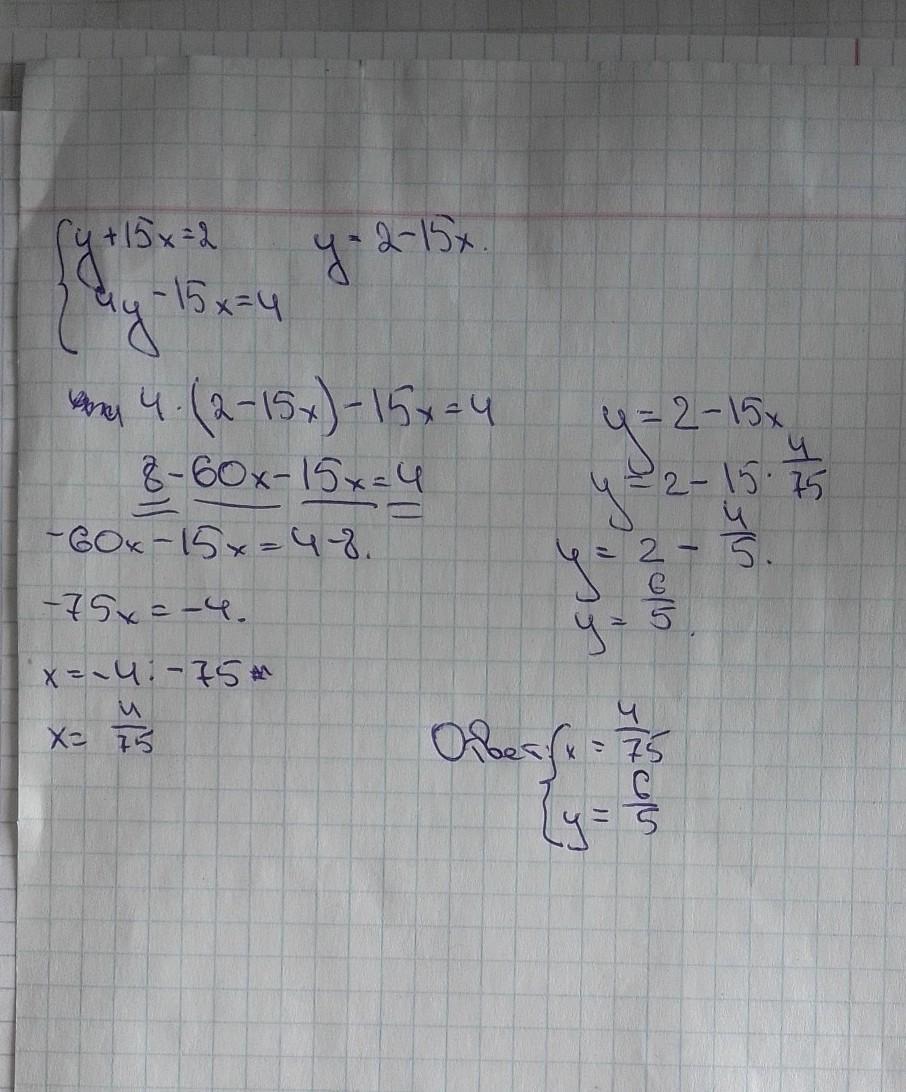 {y+15x=2
y=2-15x.
4y-15x=4
4·(2-15x)-15x=4
8-60x-15x=4
-60x-15x=4-8.
-75x=-4.
x=-4:-75
x=4/75
y=2-15x
y=2-15·4/75
y=2-4/5.
y=6/5.
Ответ: {x=4/75
y=6/5